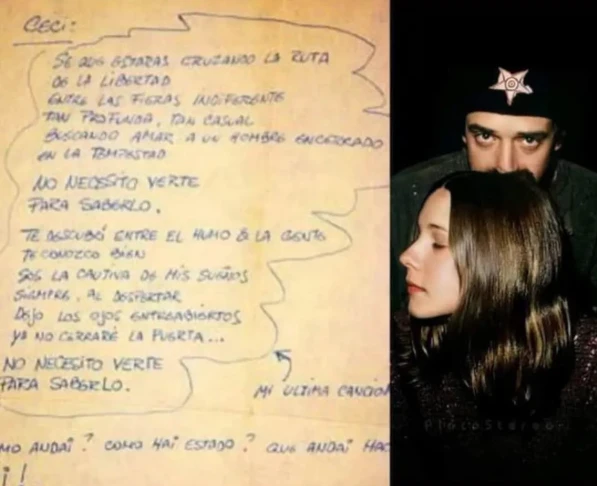 CECI:
SE QUE ESTARAS CRUZANDO LA RUTA
DE LA LIBERTAD
ENTRE LAS FIERAS INDIFERENTE
TAN PROFUNDA, TAN CASUAL
BUSCANDO AMAR A UN HOMBRE ENCERRADO
EN LA TEMPESTAD
NO NECESITO VERTE
PARA SABERLO.
TE DESCUBRÓ ENTRE EL HUMO & LA GENTE
TE CONOZCO BIEN
SOS LA CAUTIVA DE MIS SUEÑOS
SIEMPRE, AL DESPERTAR
DEJO LOS OJOS ENTREABIERTOS
YA NO CERRARÉ LA PUERTA...
NO NECESITO VERTE
PARA SABERLO.
MI ULTIMA CANCION
MO ANDAI? COMO HAI ESTADO? QUE ANDAI HAC
¡!
PlotoStereo